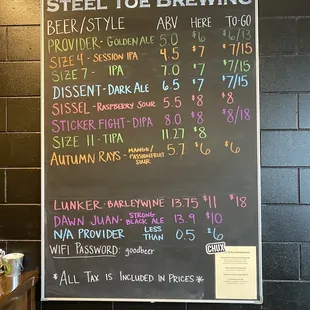 STEEL TOE BREWING
BEER/STYLE ABV HERE TO-GO
PROVIDER - GOLDEN ALE 5.0 $6 $6/13
SIZE 4 - SESSION IPA 4.5 $7 $7/15
SIZE 7 - IPA 7.0 $7 $7/15
DISSENT - DARK ALE 6.5 $7 $7/15
SISSEL - RASPBERRY SOUR 5.5 $8 $8
STICKER FIGHT - DIPA 8.0 $8 $8/18
SIZE 11 - TIPA 11.27 $8
AUTUMN RAYS - MANGO/PASSIONFRUIT SOUR 5.7 $6 $6
LUNKER - BARLEYWINE 13.75 $11 $18
DAWN JUAN - STRONG BLACK ALE 13.9 $10
N/A PROVIDER LESS THAN 0.5 $6
WIFI PASSWORD: goodbeer
CHUX
*ALL TAX IS INCLUDED IN PRICES*